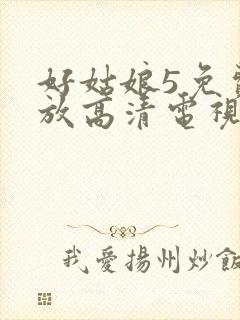 好姑娘5免
放高清電視
我愛揚州炒飯